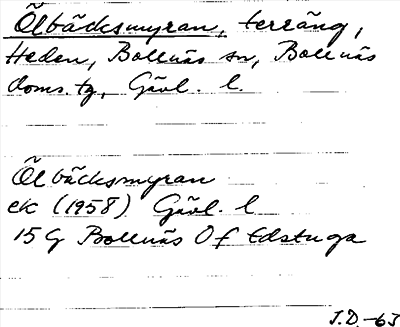 Ölbäcksmyran, terräng,
Heden, Bollnäs sn, Bollnäs
doms.tg, Gävl. l.
Ölbäcksmyran
ek (1958) Gävl. l
15 G Bollnäs 0 f Edstuga
J.D.-63